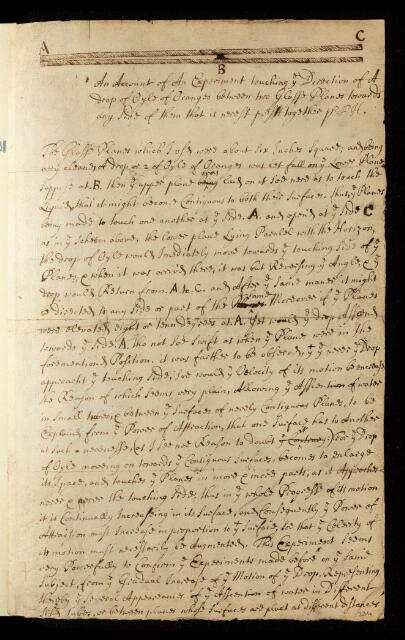 A C
B
An Account of An Experiment touching yᵉ Direction of A
drop of Oyle of Oranges between two Glasse Planes towards
any Side of them that is nearest prest together
The Glasse Planes which I used were about Six Inches Square, and being
very cleane, A drop or 2 of Oyle of Oranges was let fall on yᵉ Lower Plane
Suppose at B. then yᵉ upper plane was laid on it Soe near as to touch the
Liquid, that it might become Contiguous to both their Surfaces. Planes
being made to touch one another at yᵉ Side A. and open at yᵉ Side C
as in yᵉ Scheem above, the lower plane Lying Paralel with the Horizon,
the drop of Oyle would Imediately move towards yᵉ touching Side of yᵉ
Planes, & when it was arrived there, it was but Reversing yᵉ Angle, & yᵉ
drop would Return from A. to C. and After yᵉ Same maner it might
be directed to any Side or part of the Moreover if yᵉ Planes
were elevated eight or tenn degrees at A. Yet would yᵉ drop Ascend
towards yᵉ Side A. tho not Soe Swift as when yᵉ Plane were in the
forementioned Position. it was farther to be observed, yᵗ yᵉ nearer yᵉ Drop
approacht yᵉ touching Side, Soe would yᵉ Velocity of its motion be encreased
the Reason of which Seems very plain, Allowing yᵉ Assention of water
in Small tubes, & between yᵉ Surfaces of nearly Contiguous Planes, to be
Explaind from yᵉ Power of Attraction, that one Surface has to Another
at Such a nearnesse, (as I See noe Reason to doubt yᵉ Contrary) For yᵉ Drop
of Oyle moveing on towards yᵉ Contiguous Surfaces, becomes to Enlarge
its Space, and touches yᵉ Planes in more & more parts, as it Approaches
nearer & nearer the touching Side: thus in yᵉ whole Progress of its motion
it is Continually Increasing in its Surface, and Consequently yᵉ Power of
attraction must Increase in proportion to yᵉ Surface, Soe that yᵉ Celerity of
its motion must necessarily be Augmented. This Experiment Seems
very Forcefully to Confirm yᵉ Experiments made before on yᵉ Same
Subject, from yᵉ Gradual Increase of yᵉ Motion of yᵉ Drop, Representing
thereby yᵉ Severall Appearances of yᵉ Assention of water in Different
Siz'd tubes, or between planes whose Surfaces are plact at different distances